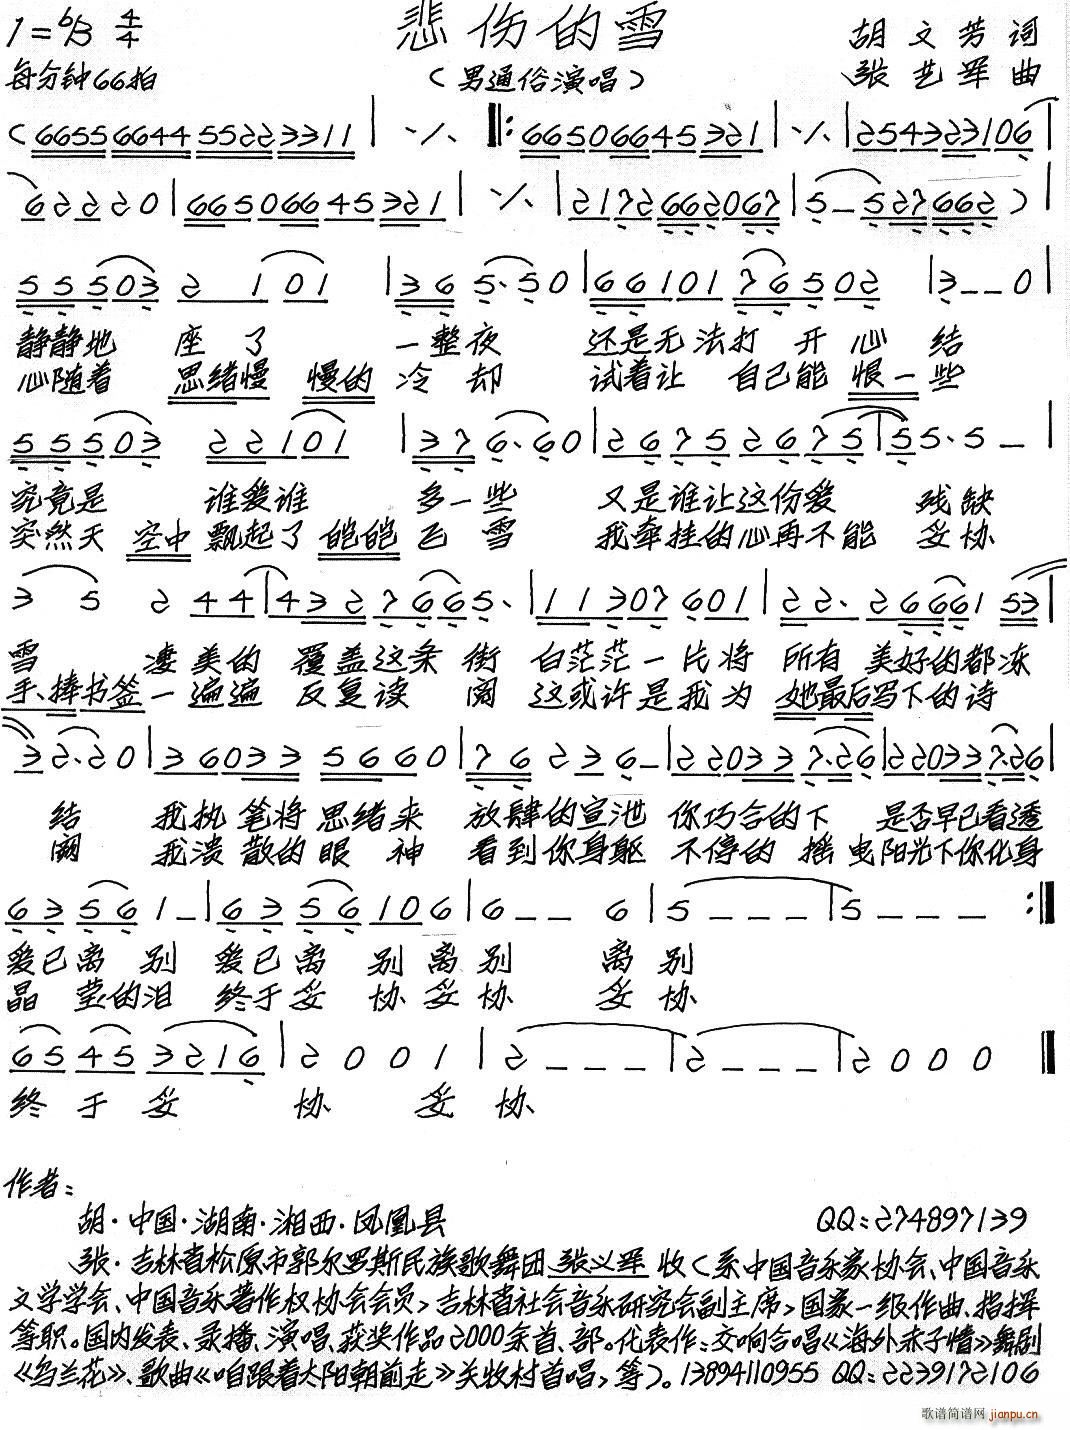 悲伤的雪
1=ᵇB 4/4
胡文芳 词
每分钟66拍
(男通俗演唱)
张艺军 曲
(6655 6644 5522 3311 | ·/· ‖: 6650 6645 321 | ·/· | 2543 23106 |
6222 0 | 6650 6645 321 | ·/· | 2172 662067 | 5 – 527 662 ) |
55503 2 101 | 36 5·50 | 66101 76502 | 3 – – 0 |
静静地 座了 一整夜 还是无法打开心结
心随着 思绪慢 慢的冷却 试着让 自己能 恨一些
55503 22101 | 37 6·60 | 2675 2675 | 55·5 – |
究竟是 谁爱谁 多一些 又是谁让这份爱 残缺
突然天 空中飘起了 皑皑飞雪 我牵挂的心再不能 妥协
3 5 2 44 | 432 7665· | 11307 601 | 22· 26661 53 |
雪 凄美的 覆盖这条街 白茫茫一片将 所有美好的都冻
手捧书签一遍遍 反复读阅 这或许是我为 她最后写下的诗
32·20 | 36033 5660 | 76 236 – | 22033 7·26 | 22033 7·26 |
结 我执笔将思绪来 放肆的宣泄 你巧合的下 是否早已看透
阙 我涣散的眼神 看到你身躯 不停的摇曳阳光下你化身
63561 – | 6356106 | 6 – – 6 | 5 – – – | 5 – – – :‖
爱已离别 爱已离别离别 离别
晶莹的泪 终于妥协妥协 妥协
6545 3216 | 2001 | 2 – – – | 2 – – – | 2000 ‖
终于妥协 妥协
作者:
胡·中国·湖南·湘西·凤凰县 QQ:274897139
张·吉林省松原市郭尔罗斯民族歌舞团张义军 收(系中国音乐家协会、中国音乐
文学学会、中国音乐著作权协会会员,吉林省社会音乐研究会副主席,国家一级作曲、指挥
等职。国内发表、录播、演唱、获奖作品2000余首、部。代表作:交响合唱《海外赤子情》舞剧
《乌兰花》、歌曲《咱跟着太阳朝前走》关牧村首唱,等)。13894110955 QQ:2239172106
歌谱简谱网 jianpu.cn